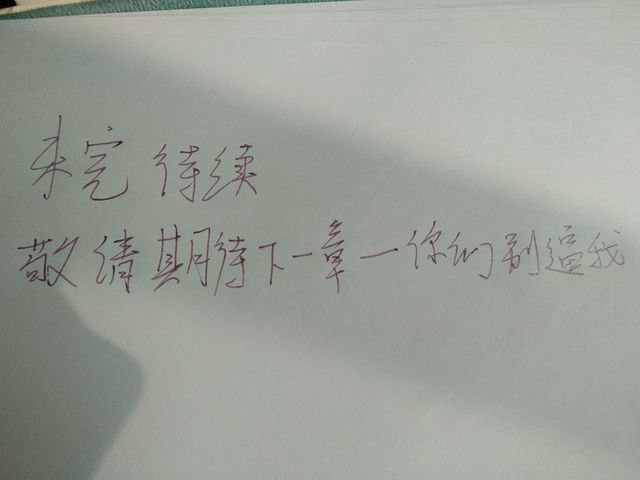 未完待续
敬请期待下一章一你们别逼我